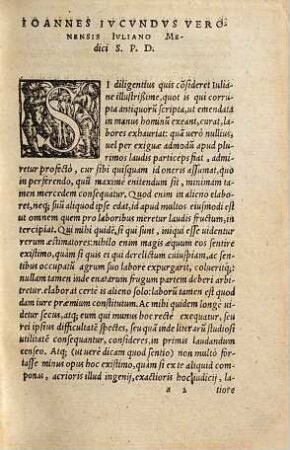 IOANNES IVCVNDVS VERO
NENSIS IVLIANO ME-
dici S. P. D.
SI diligentius quis cõsideret Iulia-
ne illustrissime, quot is qui corru-
pta antiquorũ scripta, ut emendata
in manus hominũ exeant, curat, la-
bores exhauriat: quã uerò nullius,
uel per exiguæ admodũ apud plu-
rimos laudis particeps fiat, admi-
retur profectò, cur sibi quisquam id oneris assumat, quo
in perferendo, quũ maximè enitendum sit, minimam ta-
men mercedem consequatur. Quod enim in alieno elabo-
ret, neq; suũ aliquod ipse edat, id apud multos eiusmodi est
ut omnem quem pro laboribus meretur laudis fructum, in-
tercipiat. Qui mihi quidẽ, si qui sunt, iniqui esse uidentur
rerum æstimatores: nihilo enim magis æquum eos sentire
existimo, quam si quis ei qui derelictum cuiuspiam, ac sen-
tibus occupatũ agrum suo labore expurgarit, coluerítq;: nul-
lam tamen inde enatarum frugum partem deberi arbitra-
retur. elaborat certè is alieno solo: laborũ tamen est quod-
dam iure præmium constitutum. Ac mihi quidem longè ui-
detur secus, atq; eum qui munus hoc rectè exequatur, seu
rei ipsius difficultatẽ spectes, seu quã inde literarũ studiosi
utilitatẽ consequantur, consideres, in primis laudandum
censeo. Atq; (ut uerè dicam quod sentio) non multò for-
tasse minus opus hoc existimo, quàm si ex te aliquid com-
ponas, acrioris illud ingenij, exactioris hoc iudicij, la-
a 2 tiore